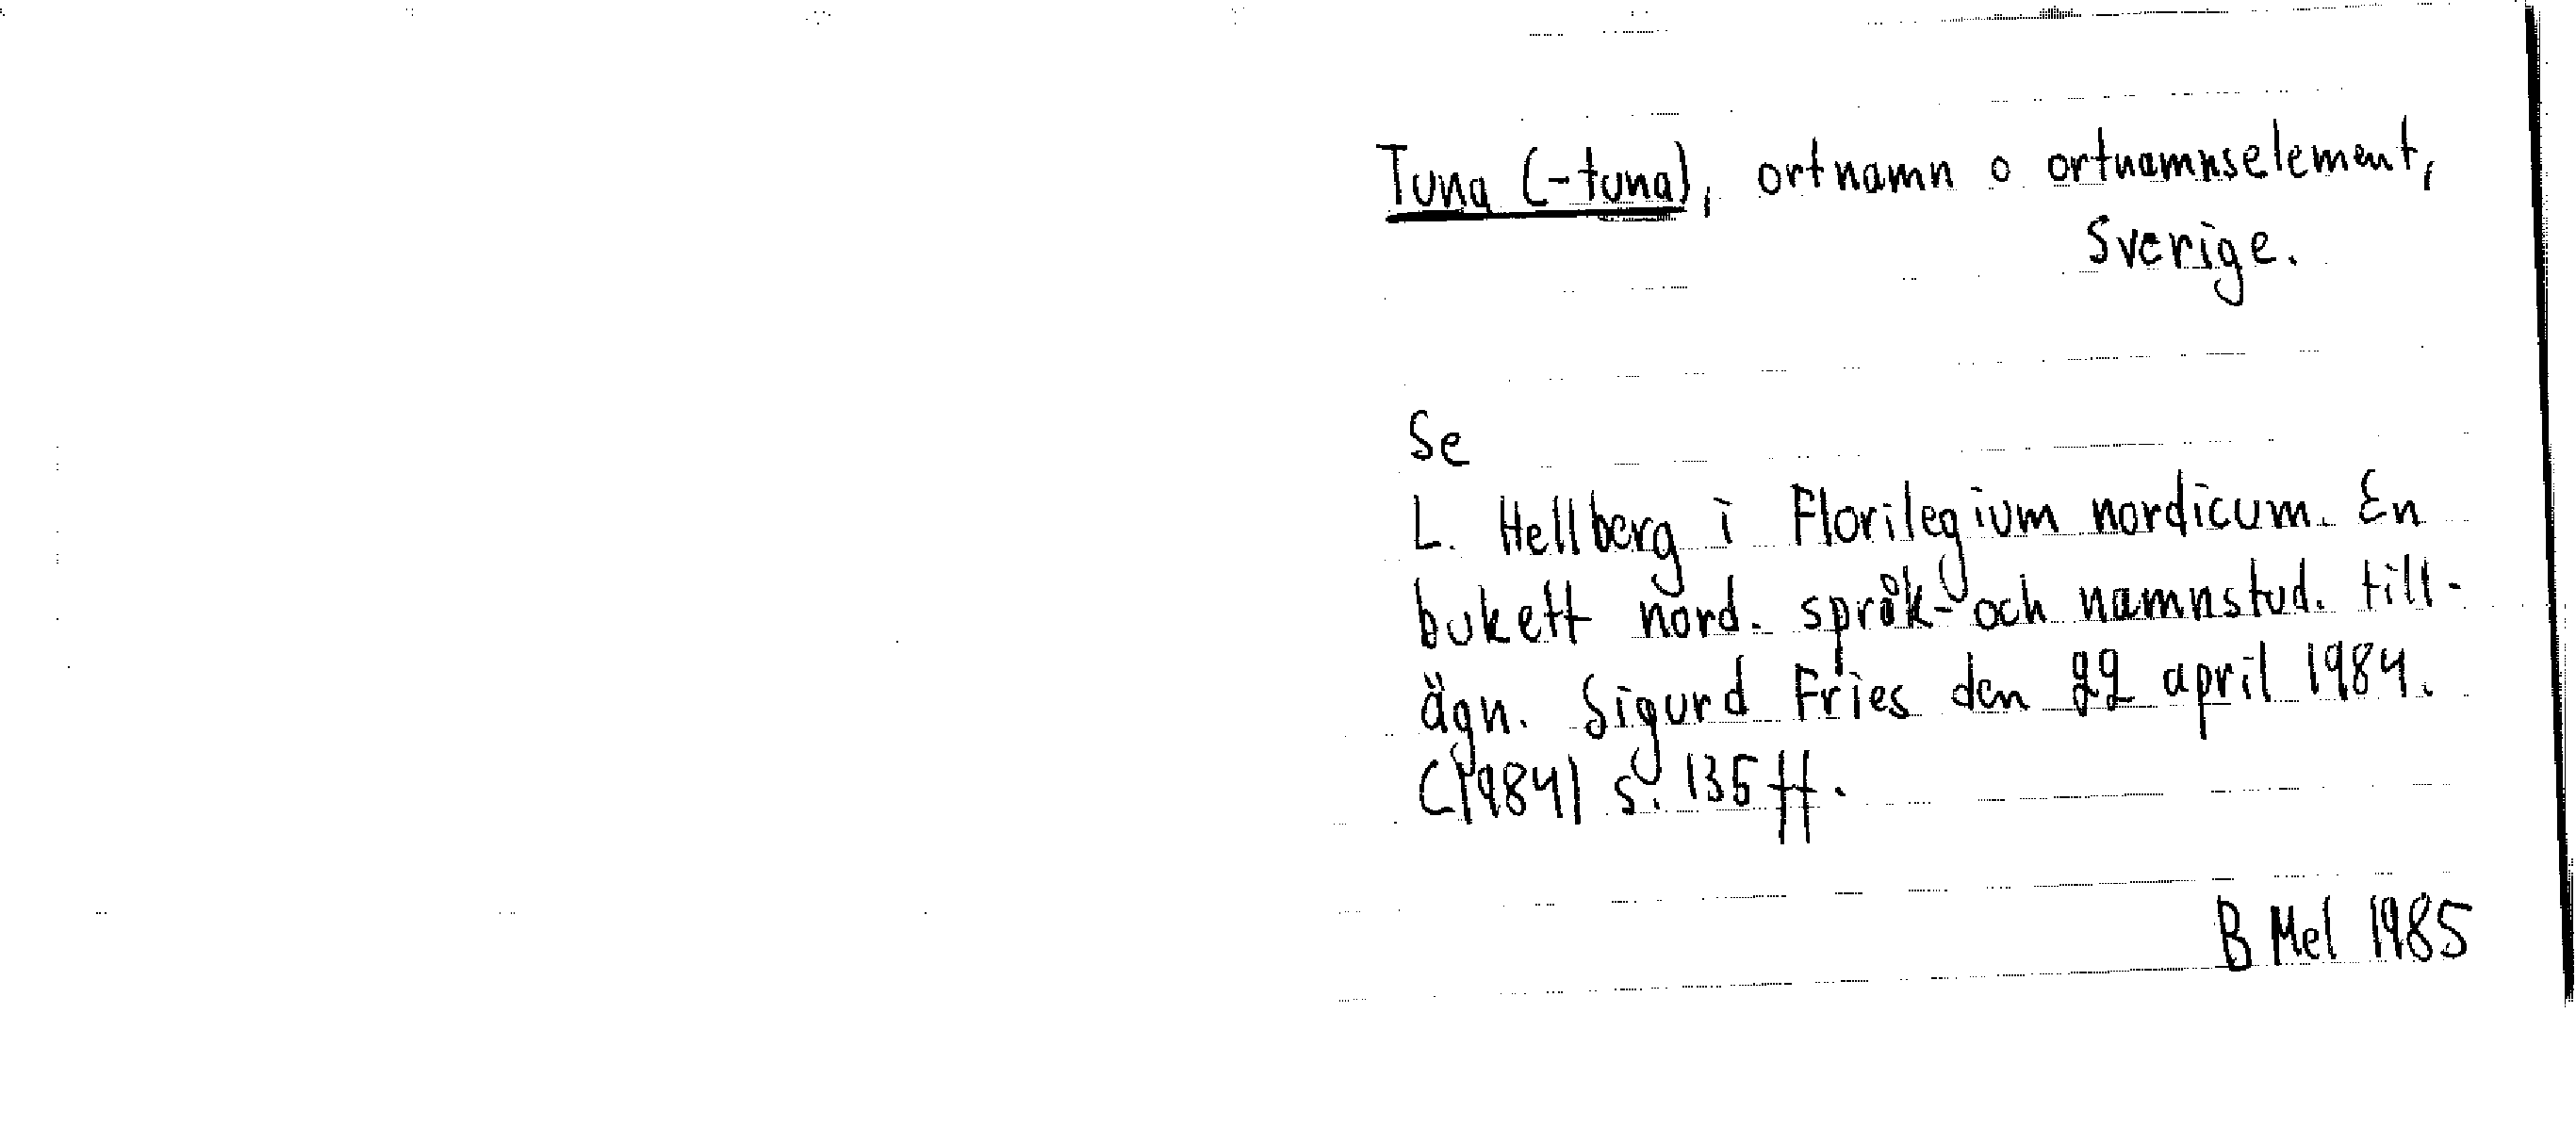 Tuna (-tuna), ortnamn o ortnamnselement,
Sverige.
Se
L. Hellberg i Florilegium nordicum. En
bukett nord. språk- och namnstud. till-
ägn. Sigurd Fries den 22 april 1984.
(1984) s. 135 ff.
B Mel 1985